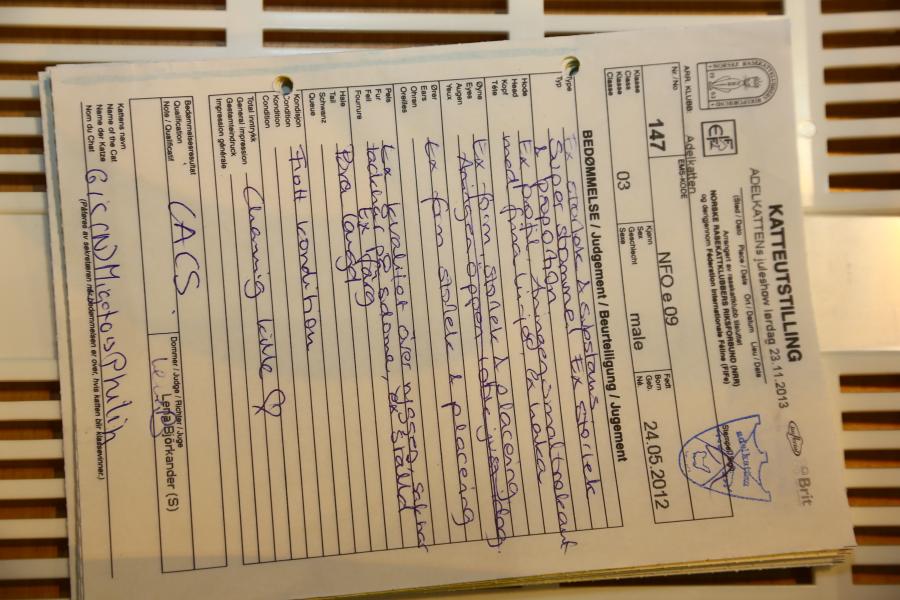 Brit
KATTEUTSTILLING
ADELKATTENs juleshow lørdag 23.11.2013
(Sted / Dato Place / Date Ort / Datum Lieu / Date)
Arrangert av rasekattklubb tilsluttet
NORSKE RASEKATTKLUBBERS RIKSFORBUND (NRR)
og derigjennom Fédération Internationale Féline (FIFe)
ARR. KLUBB: Adelkatten
EMS-KODE
Nr./No
147
NFO e 09
Født
Born
Geb.
Né.
24.05.2012
Klasse
Class
Klasse
Classe
03
Kjønn
Sex
Geschlecht
Sexe
male
BEDØMMELSE / Judgement / Beurteiligung / Jugement
Type
Typ
Ex storlek & substans
Super stommel Ex storlek
& proportion
Hode
Head
Kopf
Tête
Ex profil, Aningen
med fina linjer Ex haka
Øyne
Eyes
Augen
Yeux
Ex form, storlek & placering
Aningen öppen
Ører
Ears
Ohren
Oreilles
Ex form storlek & placering
Pels
Fur
Fell
Fourrure
Ex kvalitet över ryggen, saknar
täckhår på sidorna,
Ex färg
Hale
Tail
Schwanz
Queue
Bra längd
Kondisjon
Condition
Kondition
Condition
Flott kondition
Total inntrykk
General impression
Gesamteindruck
Impression générale
Charmig kille ♡
Bedømmelsesresultat
Qualification
Note / Qualificatif
CACS.
Dommer / Judge / Richter / Juge
Lena Björkander (S)
Kattens navn
Name of the Cat
Name der Katze
Nom du Chat
GIC (N) Mirotovs Philip
(Påføres av sekretæren når bedømmelsen er over, hvis katten blir klassevinner.)